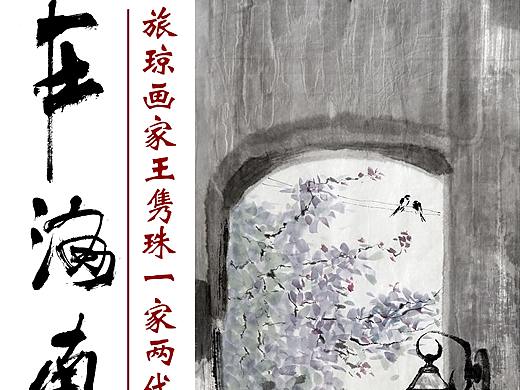 在海南
旅琼画家王隽珠一家两代